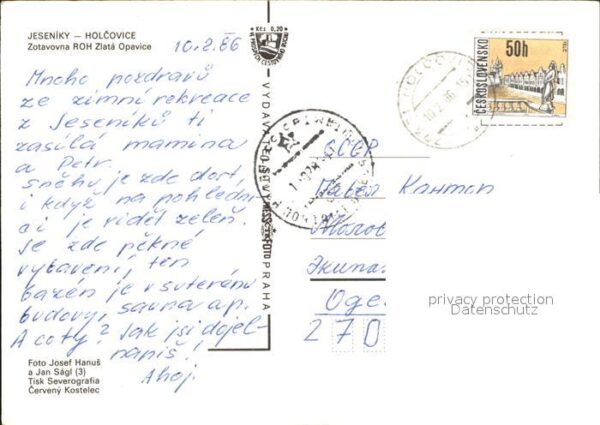 JESENÍKY — HOLČOVICE
Zotavovna ROH Zlatá Opavice
10.2.86
Mnoho pozdravů
ze zimní rekreace
z Jeseníků ti
zasílá mamina
a Petr.
sněhu je zde dost,
i když na pohledni-
ci je viděl zeleň.
Je zde pěkné
vybavení, ten
bazén je v suterénu
budovy, sauna ap.
A co ty? Jak jsi dojel-
napiš!
Ahoj.
Foto Josef Hanuš
a Jan Ságl (3)
Tisk Severografia
Červený Kostelec
Kčs 0,20
PRAHA
50h
ČESKOSLOVENSKO
СССР
Павел Кантон
Оде
270
privacy protection
Datenschutz